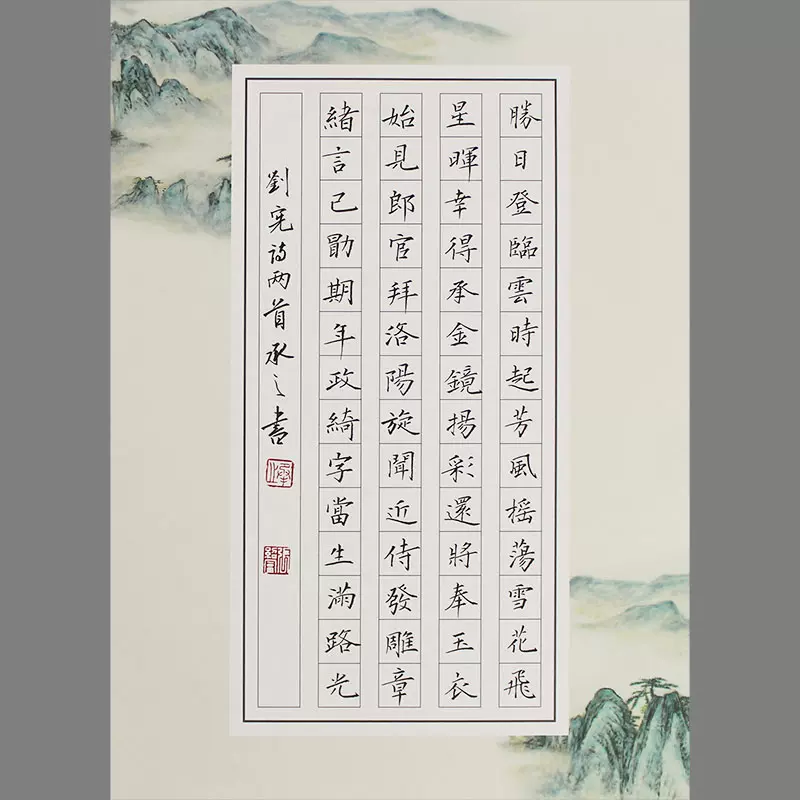 勝日登臨雲時起芳風摇蕩雪花飛
星暉幸得承金鏡揚彩還將奉玉衣
始見郎官拜洛陽旋聞近侍發雕章
緒言已勖期年政綺字當生滿路光
劉宪诗两首承之書